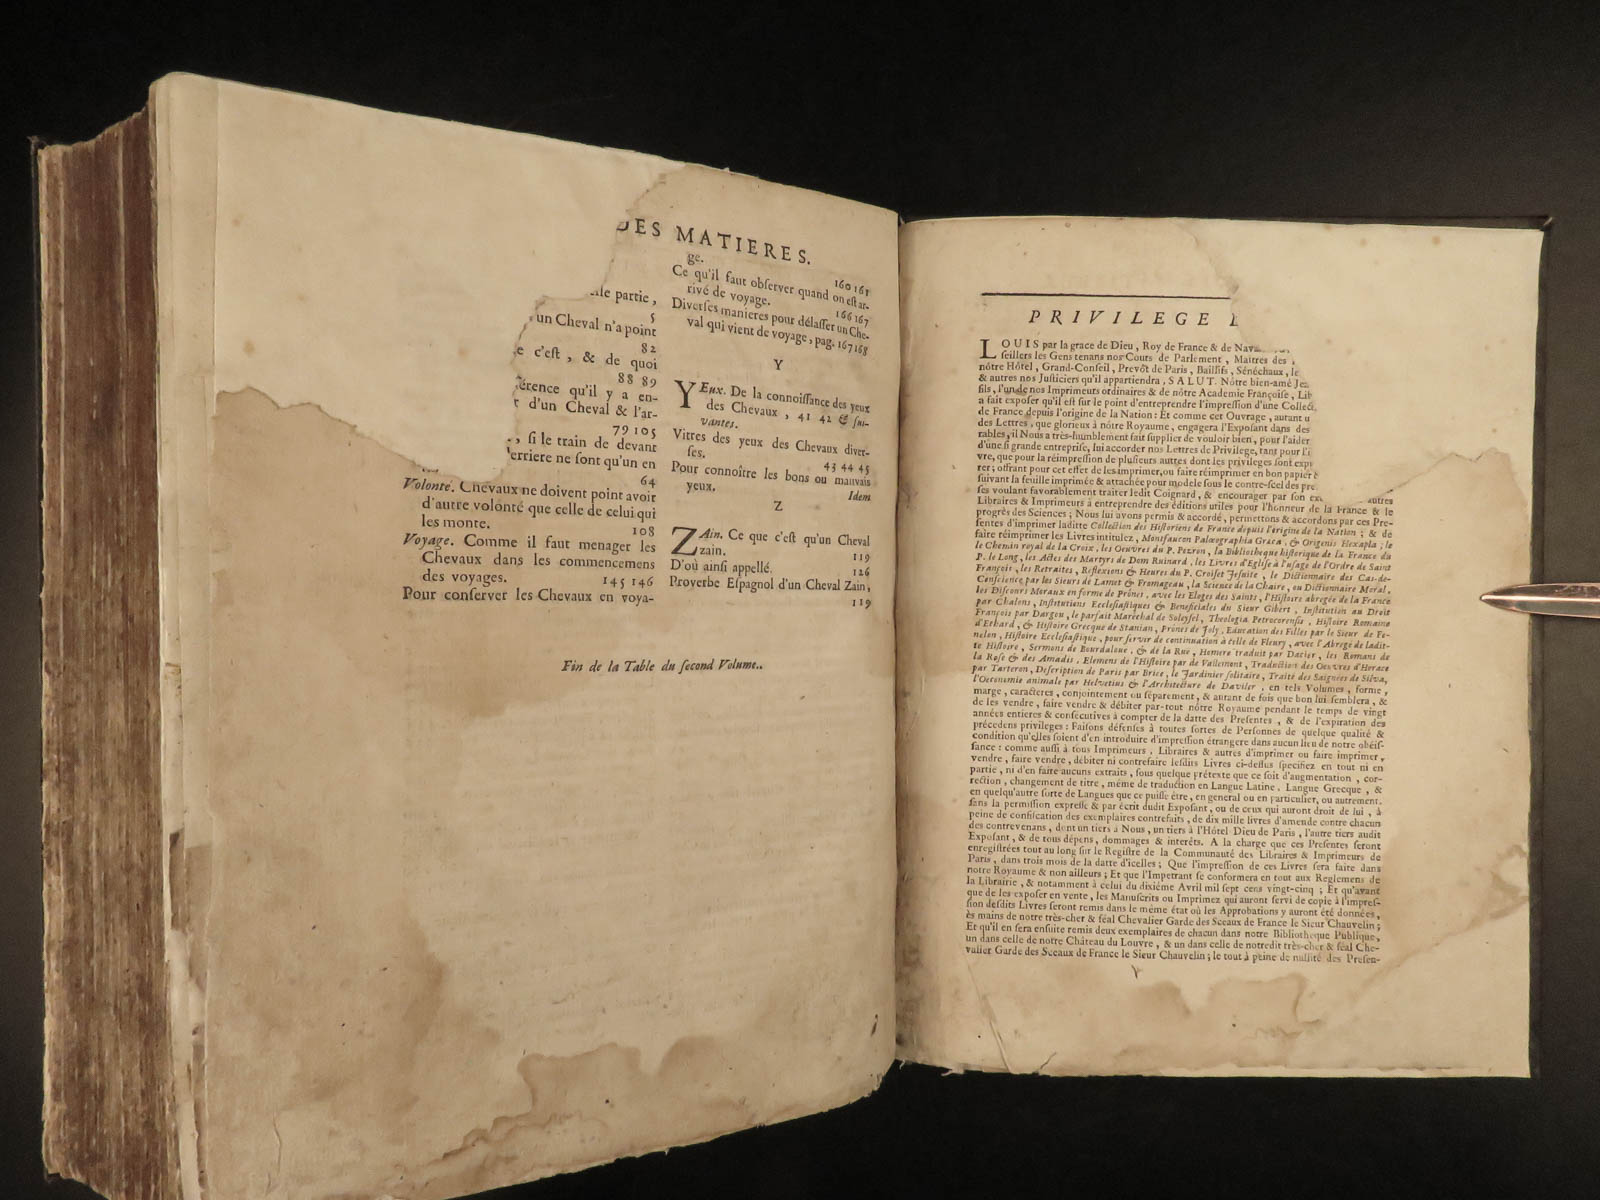 DES MATIERES.
partie ,
5
un Cheval n'a point
82
c'est , & de quoi
88 89
qu'il y a en-
d'un Cheval & l'ar-
79 105
, si le train de devant
derriere ne sont qu'un en
64
Volonté. Chevaux ne doivent point avoir
d'autre volonté que celle de celui qui
les monte.
108
Voyage. Comme il faut menager les
Chevaux dans les commencemens
des voyages. 145 146
Pour conserver les Chevaux en voya-
ge. 160 161
Ce qu'il faut observer quand on est ar-
rivé de voyage. 166 167
Diverses manieres pour délasser un Che-
val qui vient de voyage , pag. 167 168
Y
YEux. De la connoissance des yeux
des Chevaux , 41 42 & sui-
vantes.
Vitres des yeux des Chevaux diver-
ses. 43 44 45
Pour connoître les bons ou mauvais
yeux. Idem
Z
ZAin. Ce que c'est qu'un Cheval
zain. 119
D'où ainsi appellé. 126
Proverbe Espagnol d'un Cheval Zain,
119
Fin de la Table du second Volume..
PRIVILEGE
LOUIS par la grace de Dieu , Roy de France & de
seillers les Gens tenans nos Cours de Parlement , Maîtres des
nôtre Hôtel , Grand-Conseil , Prevôt de Paris , Baillifs, Sénéchaux , le
& autres nos Justiciers qu'il appartiendra , SALUT. Nôtre bien-amé
fils , l'un de nos Imprimeurs ordinaires & de nôtre Academie Françoise ,
a fait exposer qu'il est sur le point d'entreprendre l'impression d'une
de France depuis l'origine de la Nation : Et comme cet Ouvrage , autant
des Lettres , que glorieux à nôtre Royaume , engagera l'Exposant dans des
rables, il Nous a très-humblement fait supplier de vouloir bien , pour l'aider
d'une si grande entreprise, lui accorder nos Lettres de Privilege, tant pour
vre, que pour la réimpression de plusieurs autres dont les privileges sont
rer ; offrant pour cet effet de les imprimer, ou faire réimprimer en bon papier
suivant la feuille imprimée & attachée pour modele sous le contre-scel des
ses voulant favorablement traiter ledit Coignard , & encourager par son autres
Libraires & Imprimeurs à entreprendre des éditions utiles pour l'honneur de la France & le
progrès des Sciences ; Nous lui avons permis & accordé , permettons & accordons par ces Pre-
sentes d'imprimer laditte Collection des Historiens de France depuis l'origine de la Nation ; & de
faire réimprimer les Livres intitulez , Montfaucon Palæographia Græca , & Origenis Hexapla ; le
le Chemin royal de la Croix , les Oeuvres du P. Pezron, la Bibliotheque historique de la France du
P. le Long, les Actes des Martyrs de Dom Ruinard , les Livres d'Eglise à l'usage de l'Ordre de Saint
François , les Retraites , Reflexions & Heures du P. Croiset Jesuite , le Dictionnaire des Cas-de-
Conscience par les Sieurs de Lamet & Fromageau , la Science de la Chaire, ou Dictionnaire Moral,
les Discours Moraux en forme de Prônes , avec les Eloges des Saints , l'Histoire abregée de la France
par Chalons, Institutions Ecclesiastiques & Beneficiales du Sieur Gibert , Institution au Droit
François par Dargou , le parfait Maréchal de Soleysel, Theologia Petrocorensis , Histoire Romaine
d'Echard , & Histoire Grecque de Stanian , Prônes de Joly, Education des Filles par le Sieur de Fe-
nelon , Histoire Ecclesiastique , pour servir de continuation à celle de Fleury , avec l'Abregé de ladit-
te Histoire , Sermons de Bourdaloue , & de la Rue , Homere traduit par Dacier , les Romans de
la Rose & des Amadis , Elemens de l'Histoire par de Vallemont , Traduction des Oeuvres d'Horace
par Tarteron, Description de Paris par Brice, le Jardinier solitaire , Traité des Saignées de Silva,
l'Oeconomie animale par Helvetius & l'Architecture de Daviler , en tels Volumes , forme ,
marge , caracteres , conjointement ou séparement , & autant de fois que bon lui semblera , &
de les vendre , faire vendre & débiter par-tout nôtre Royaume pendant le temps de vingt
années entieres & consécutives à compter de la datte des Presentes , & de l'expiration des
précedens privileges : Faisons défenses à toutes sortes de Personnes de quelque qualité &
condition qu'elles soient d'en introduire d'impression étrangere dans aucun lieu de notre obéis-
sance : comme aussi à tous Imprimeurs , Libraires & autres d'imprimer ou faire imprimer,
vendre , faire vendre , débiter ni contrefaire lesdits Livres ci-dessus specifiez en tout ni en
partie , ni d'en faire aucuns extraits , sous quelque prétexte que ce soit d'augmentation , cor-
rection , changement de titre , même de traduction en Langue Latine , Langue Grecque , &
en quelqu'autre sorte de Langues que ce puisse être , en general ou en particulier, ou autrement,
sans la permission expresse & par écrit dudit Exposant , ou de ceux qui auront droit de lui , à
peine de confiscation des exemplaires contrefaits, de dix mille livres d'amende contre chacun
des contrevenans , dont un tiers à Nous , un tiers à l'Hôtel Dieu de Paris , l'autre tiers audit
Exposant , & de tous dépens, dommages & interêts. A la charge que ces Presentes seront
enregistrées tout au long sur le Registre de la Communauté des Libraires & Imprimeurs de
Paris , dans trois mois de la datte d'icelles ; Que l'impression de ces Livres sera faite dans
notre Royaume & non ailleurs ; Et que l'Impetrant se conformera en tout aux Reglemens de
la Librairie , & notamment à celui du dixiéme Avril mil sept cens vingt-cinq ; Et qu'avant
que de les exposer en vente , les Manuscrits ou Imprimez qui auront servi de copie à l'impres-
sion desdits Livres seront remis dans le même état où les Approbations y auront été données,
ès mains de notre très-cher & féal Chevalier Garde des Sceaux de France le Sieur Chauvelin ;
Et qu'il en sera ensuite remis deux exemplaires de chacun dans notre Bibliotheque Publique,
un dans celle de notre Château du Louvre , & un dans celle de notredit très-cher & féal Che-
valier Garde des Sceaux de France le Sieur Chauvelin ; le tout à peine de nullité des Presen-